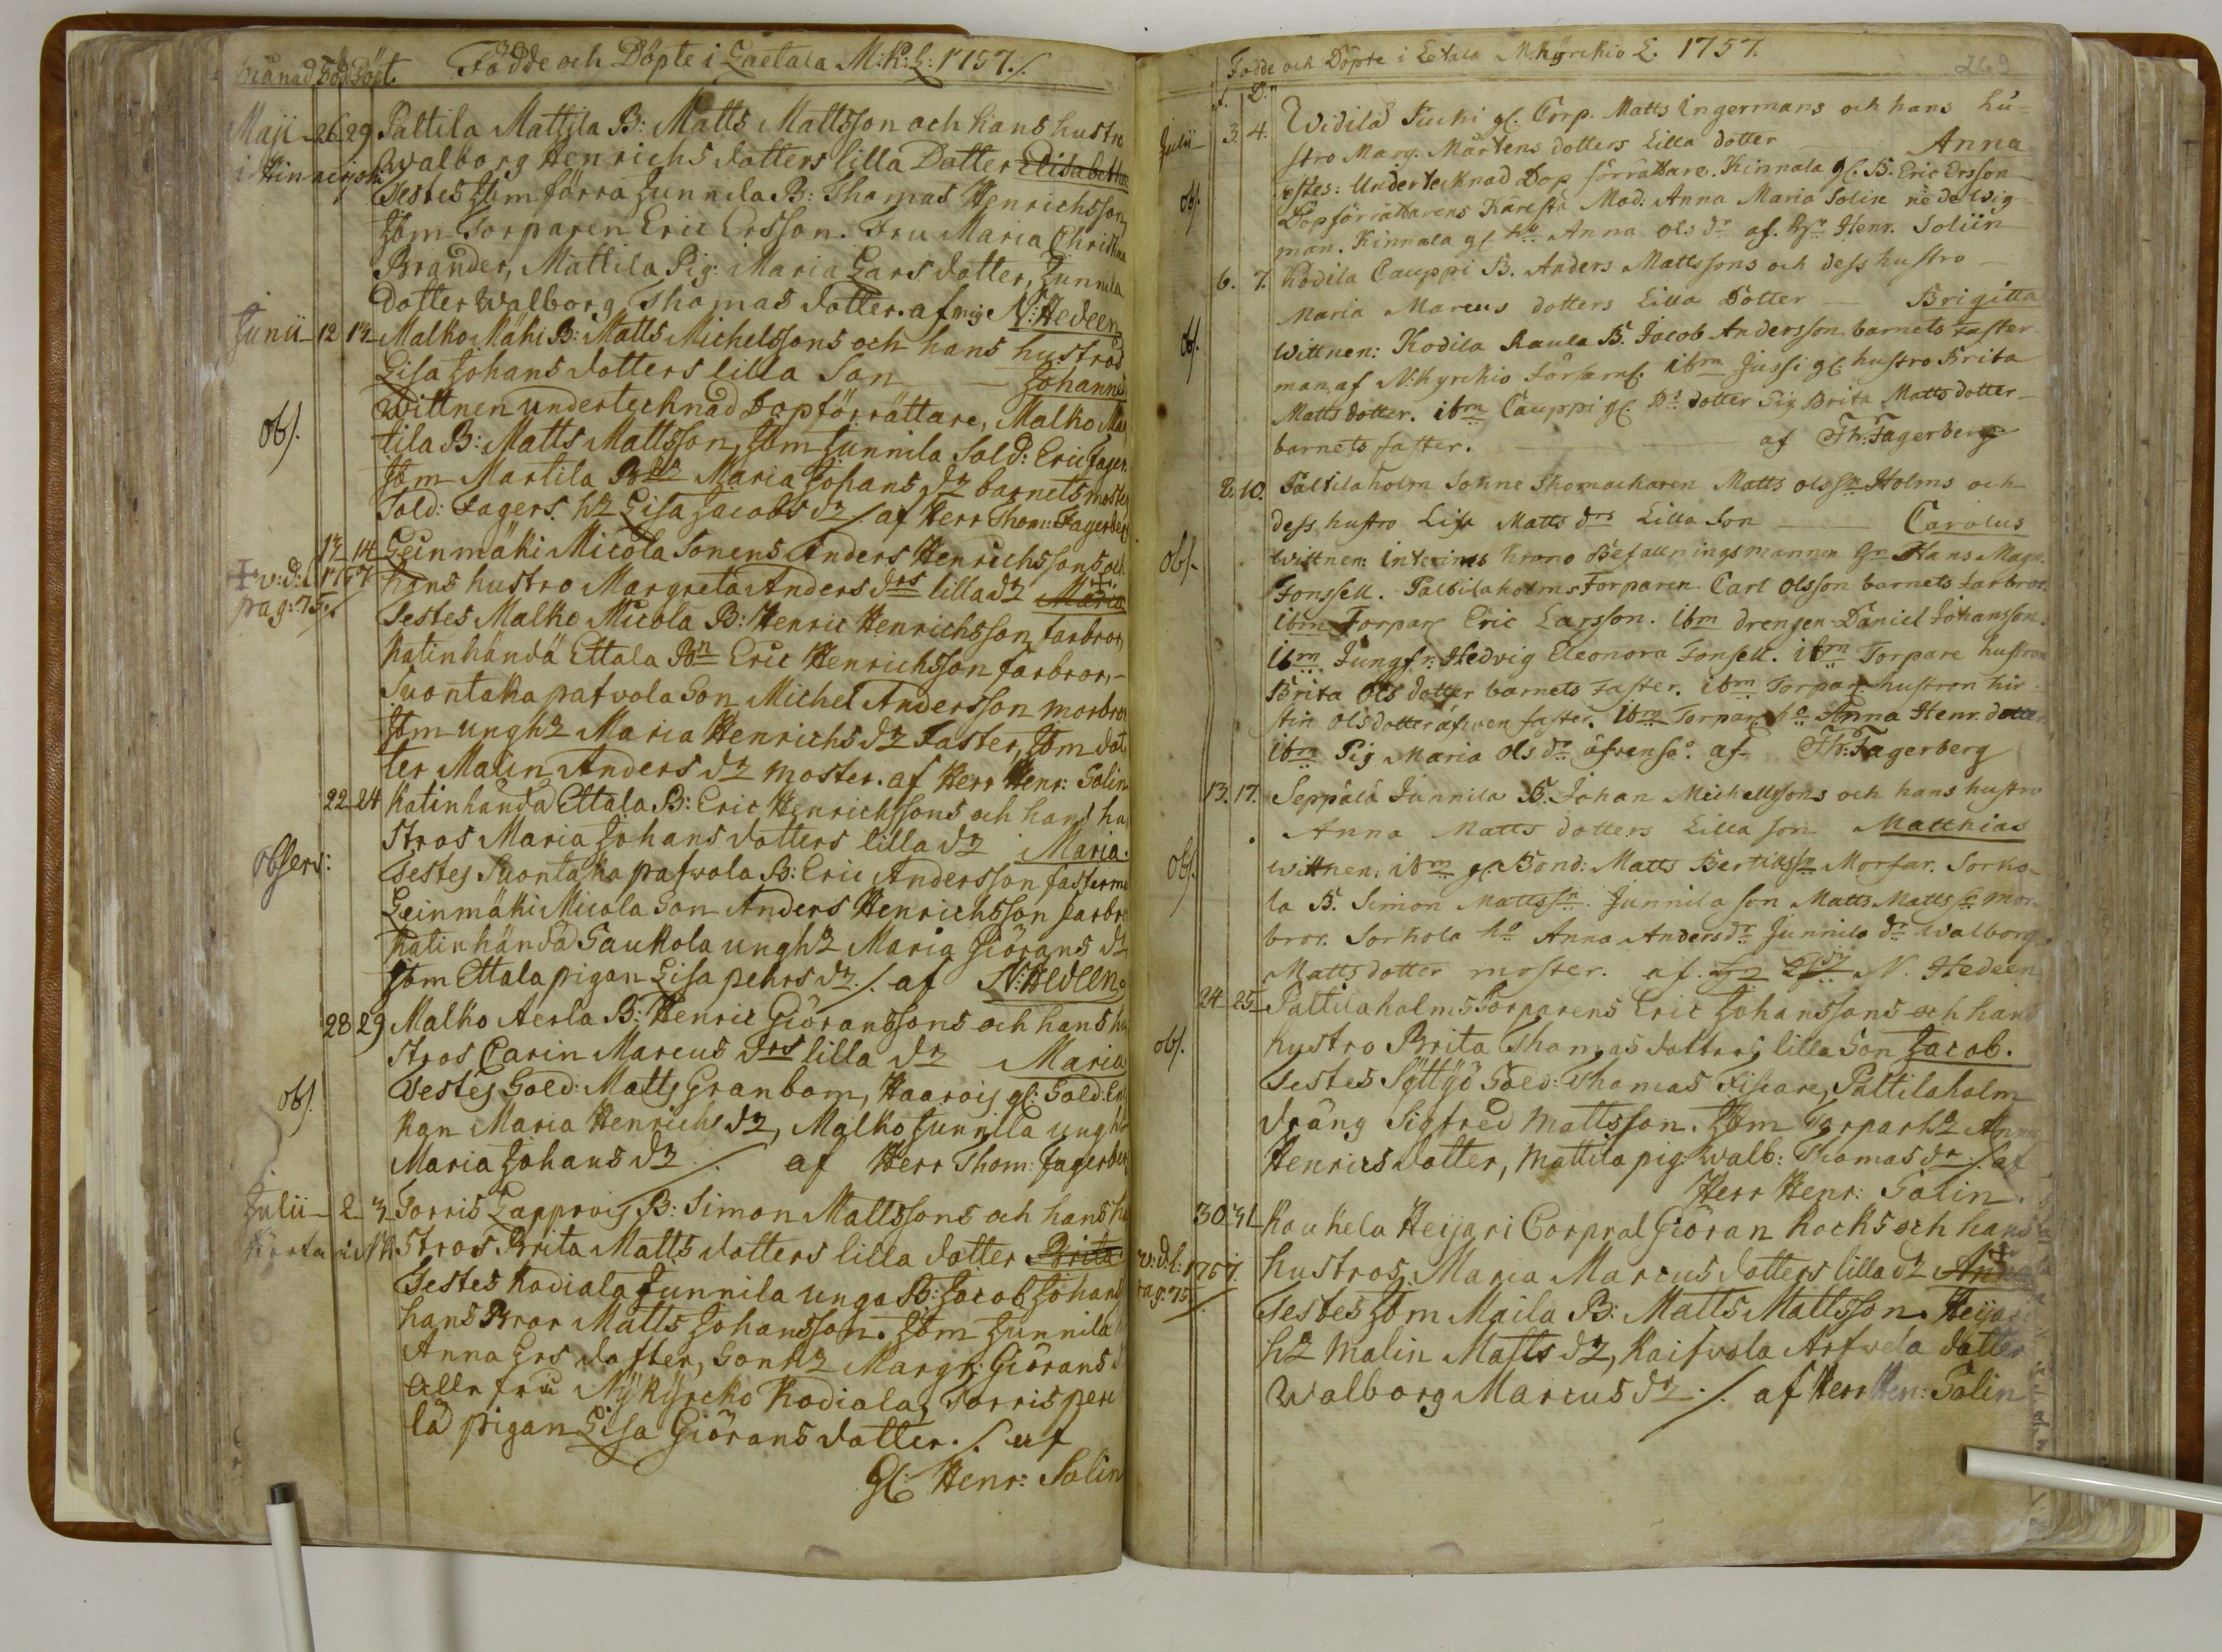 Födde och Döpte i Laetala M:K:L: 1757./.
Född Döpt.
Maji 26 29 Paltila Mattila B: Matts Mattsson och hans hustro
Walborg Henrichs dotters lilla Dotter Elisabetha
Testes Ibm förra Junnila B: Thomas Henrichsson,
Ibm Torparen Eric Ersson. Fru Maria Christina
Brander, Mattila Pig: Maria Lars dotter, Junnila
dotter Walborg Thomas dotter. af mig N: Hedeen
Junii 12 13 Malko Mäki B: Matts Michelssons och hans hustros
Lisa Johans dotters lilla Son Johannes
Wittnen undertechnad Dopförrättare, Malko Mar
tila B: Matts Mattsson, Ibm Junnila Sold: Eric Fager.
obs.
Ibm Martila Maria Johans dr barnets moster
Sold: Fagers. hr Lisa Jacobs dr /. af Herr Thom: Fagerber
13 14 Leinmäki Micola Sonens Anders Henrichssons och
v:d:l 1757 hans hustro Margreta Anders drs lilla dr Maria
pag: 75.
Testes Malko Micola B: Henric Henrichsson farbror,
Katinhändä Ettala Bn Eric Henrichsson farbror,
Suontaka pafvola Son Michel Andersson morbror
Ibm ungh Maria Henrichs dr Faster, Ibm dot
ter Malin Anders dr moster. af Herr Henr: Solin
22 24 Katinhändä Ettala B: Eric Henrichssons och hans hu
stros Maria Johans dotters lilla dr Maria.
Observ:
Testes Suontaka pafwola B: Eric Andersson
Leinmäki Micola Son Anders Henrichsson farbro
Katinhändä Saukola ungh Maria Giörans dr
Ibm Ettala pigan Lisa pehrs dr ./. af N: Hedeen.
28 29 Malko Aerla B: Henric Giöranssons och hans hu
stros Carin Marcus drs lilla dr Maria
Testes Sold: Matts Granbom, Haarois gl: Sold: En
obs.
kan Maria Henrichs dr, Malko Junnila ungh
Maria Johans dr ./. af Herr Thom: Fagerber
Julii 2 3 Torris Lapprois B: Simon Mattssons och hans hu
stros Brita Matts dotters lilla dotter Brita
Testes Kodiala Junnila unga B: Jacob Johans
hans Bror Matts Johansson. Ibm Junnila
Anna Ers dotter, Sonhr Margr: Giörans
alla från Nykyrcko Kodiala, Torris
lä pigan Lisa Giörans dotter ./. af
Henr: Solin
Fodde och Döpte i Letala M.Kyrckio L. 1757.
269
f. D.
Julii 3. 4. Widilä Pucki gl. Corp. Matts Ingermans och hans hu-
stro Marg. Mårtens dotters lilla dotter Anna
Testes: Undertecknad Dop förrättare. Kinnala gl. B. Eric Ersson
obs.
Dopförrättarens Käresta Mad: Anna Maria Solin née Wig-
man. Kinnala gl. Anna Ols dr af. Henr. Soliin
6. 7. Kodila Cauppi B. Anders Mattssons och dess hustro
Maria Marcus dotters Lilla Dotter Brigitta
obs.
Wittnen: Kodila Raula B. Jacob Andersson barnets faster
man, af N:kyrckio Församl. ibm Jussi gl. hustro Brita
Matts dotter. ibm Cauppi gl. dotter Pig Brita Matts dotter
barnets faster. af Th: Fagerberg
8. 10. Paltilaholm Sohne Skomackaren Matts Olssn Holms och
dess hustro Lisa Matts drs Lilla Son Carolus
obs.
Wittnen: Interims krono Befallningsmannen Hans Magn.
Fonssell. Paltilaholms Torparen Carl Olsson barnets farbror.
ibm Torpar Eric Larsson. ibm drengen Daniel Johansson.
ibm Jungfr: Hedvig Eleonora Fonsell. ibm Torpare hustron
Brita Ols dotter barnets Faster. ibm Torpar hustron kir
stin Olsdotter äfwen faster. ibm Torpar Anna Henr. dotter
ibm Pig Maria Ols dr af Th: Fagerberg
13. 17. Seppälä Junnila B. Johan Michellssons och hans hustro
Anna Matts dotters Lilla son Matthias
obs.
wittnen: ibm gl. Bond: Matts Bertilssn Morfar. Sorko-
la B. Simon Mattssn. Junnila son Matts Mattssn mor-
bror. Sorkola Anna Anders dr Junnila dr Walborg
Matts dotter moster. af N. Hedeen
24 25 Paltilaholms Torparens Eric Johanssons och hans
obs.
hustro Brita Thomas dotters lilla Son Jacob.
Testes Söttyö Sold: Thomas Fiscare, Paltilaholm
dräng Sigfred Mattsson. Ibm Torparhr Anna
Henrics dotter, Mattila pig: Walb: Thomas dr ./. af
Herr Henr: Solin.
30 31 Koukela Heijari Corpral Giöran Kocks och hans
v:d:l: 1757. hustros Maria Marcus dotters lilla dr
pag. 75
Testes Ibm Maila B: Matts Mattsson. Heijari
hr Malin Matts dr, Kaifwola Arfwela dotter
Walborg Marcus dr ./. af Herr Hen: Solin